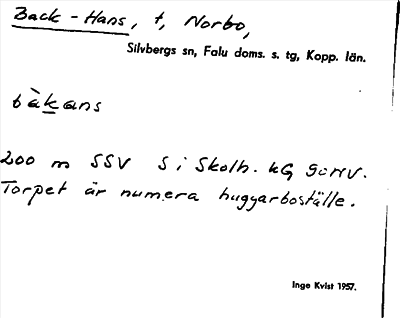 Back-Hans, t, Norbo,
Silvbergs sn, Falu doms. s. tg, Kopp. län.
bàkans
200 m SSV S i Skolh. kG
Torpet är numera huggarboställe.
Inge Kvist 1957.